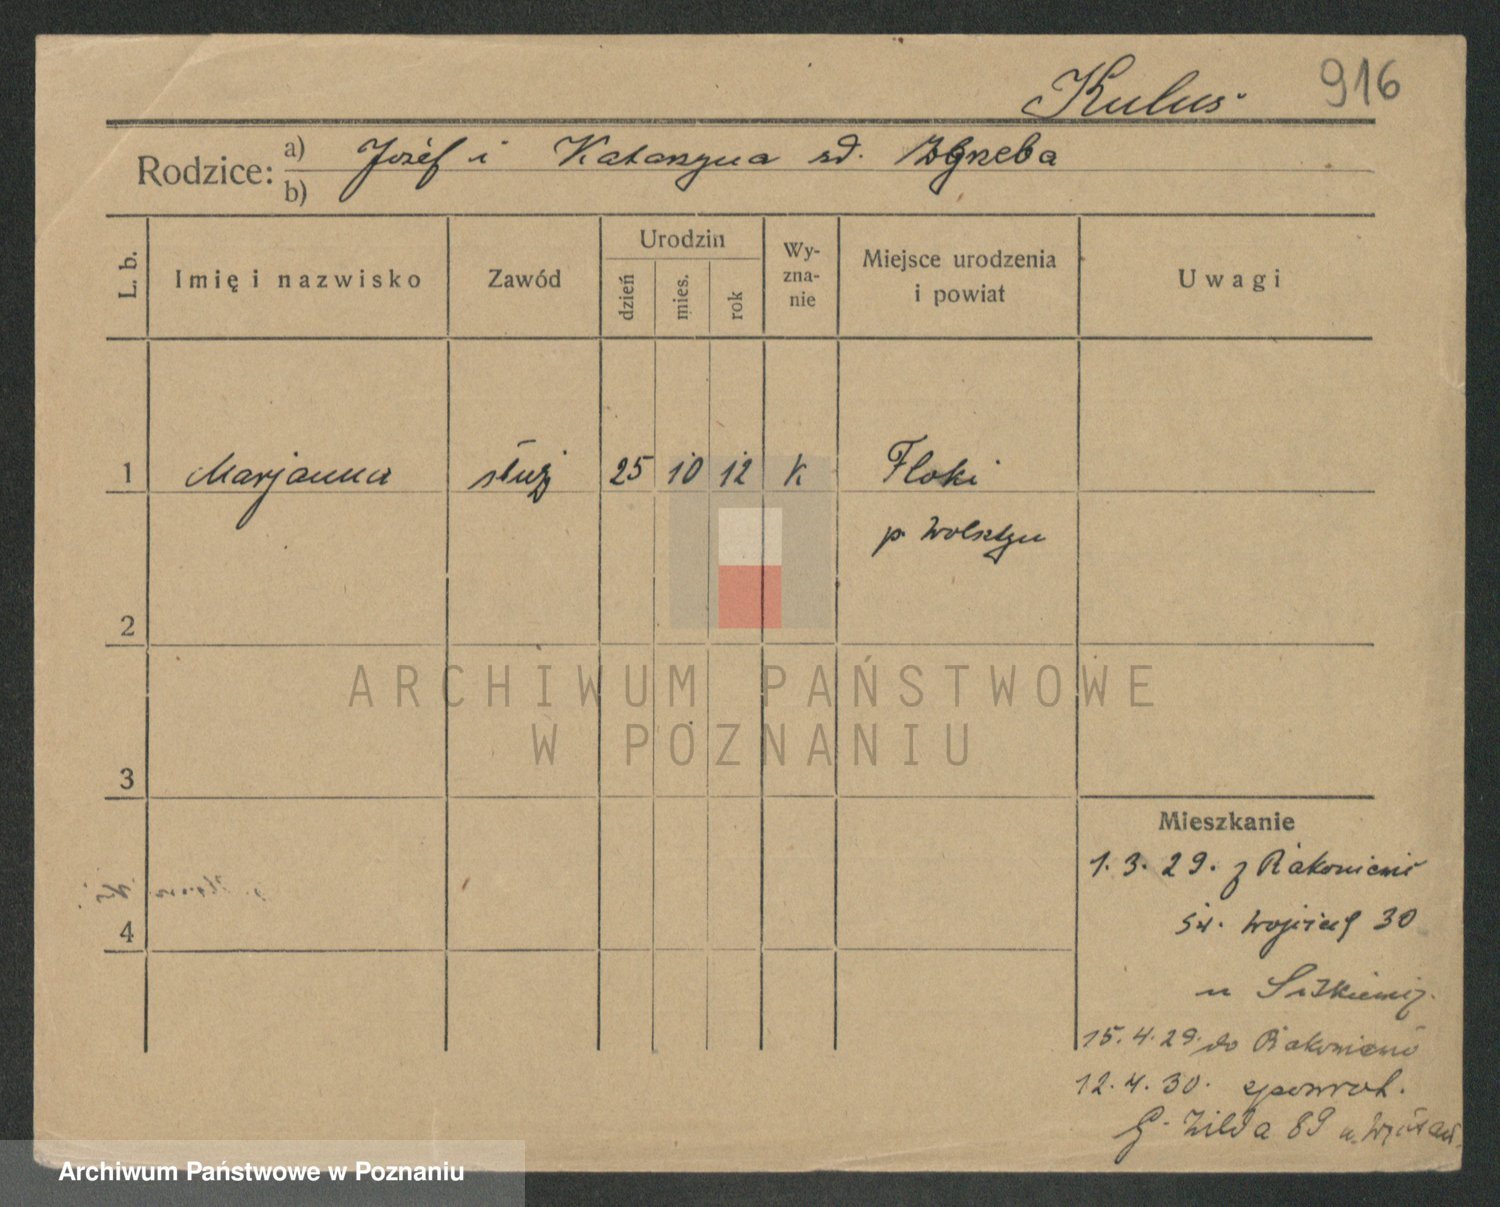 Kulus 916
Rodzice: a) Józef i Katarzyna zd. Zgrzeba
b)
L. b. Imię i nazwisko Zawód Urodzin dzień mies. rok Wy-zna-nie Miejsce urodzenia i powiat Uwagi
1 Marjanna służ 25 10 12 K Floki
p. Wolsztyn
2
ARCHIWUM PAŃSTWOWE
W POZNANIU
3
Mieszkanie
1. 3. 29. z Rakoniewic
4 św. Wojciech 30
u
15. 4. 29. do Rakoniewic
12. 4. 30. spowrot.
G. Wilda 89 u.
Archiwum Państwowe w Poznaniu